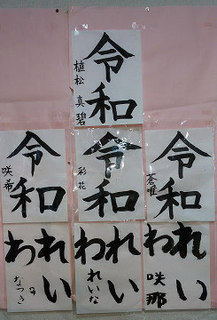 令和
植松 真碧
令和
咲希
令和
彩花
令和
蒼唯
れい
わ
なつき
れい
わ
れいな
れい
わ
咲那